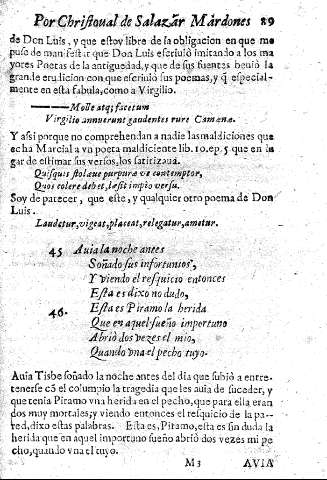 Por Chriſtoual de Salazar Mardones 89
de Don Luis, y que eſtoy libre de la obligacion en que me
puſe de manifeſtar que Don Luis eſcriuiò imitando a los ma
yores Poetas de la antiguedad, y que de ſus fuentes beuiò la
grande erudicion con que eſcriuiò ſus poemas, y q̃ eſpecial-
mente en eſta fabula, como a Virgilio.
Molle atq; facetum
Virgilio annuerunt gaudentes rure Camœnæ.
Y aſsi porque no comprehendan a nadie las maldiciones que
echa Marcial a vn poeta maldiciente lib. 10. ep. 5 que en lu
gar de eſtimar ſus verſos, los ſatirizaua.
Quiſquis ſtolæue purpuræ ve contemptor,
Quos colere debet, læſit impio verſu.
Soy de parecer, que eſte, y qualquier otro poema de Don
Luis.
Laudetur, vigeat, placeat, relegatur, ametur.
45 Auia la noche antes
Soñado ſus infortunios,
Y viendo el reſquicio entonces
Eſta es dixo no dudo,
46. Eſta es Piramo la herida
Que en aquel ſueño importuno
Abriò dos vezes el mio,
Quando vna el pecho tuyo.
Auia Tisbe ſoñado la noche antes del dia que ſubiò a entre-
tenerſe cõ el columpio la tragedia que les auia de ſuceder, y
que tenia Piramo vna herida en el pecho, que para ella eran
dos muy mortales; y viendo entonces el reſquicio de la pa-
red, dixo eſtas palabras. Eſta es, Piramo, eſta es ſin duda la
herida que en aquel importuno ſueño abriò dos vezes mi pe
cho, quando vna el tuyo.
M3 AVIA